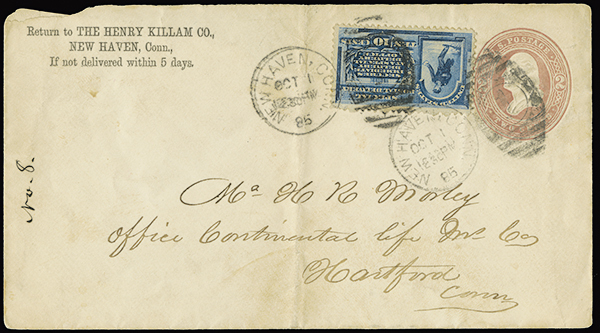 Return to THE HENRY KILLAM CO.,
NEW HAVEN, Conn.,
If not delivered within 5 days.
U.S. POSTAGE
NEW HAVEN, CONN.
OCT 1
1230PM
85
NEW HAVEN, CONN.
OCT 1
1230PM
85
No. 8.
Mr H R Morley
Office Continental life Ins Co
Hartford
Conn